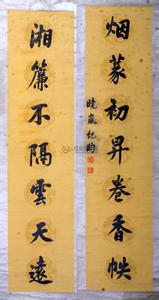 烟篆初昇卷香帙
晓岚纪昀
湘簾不隔雲天遠